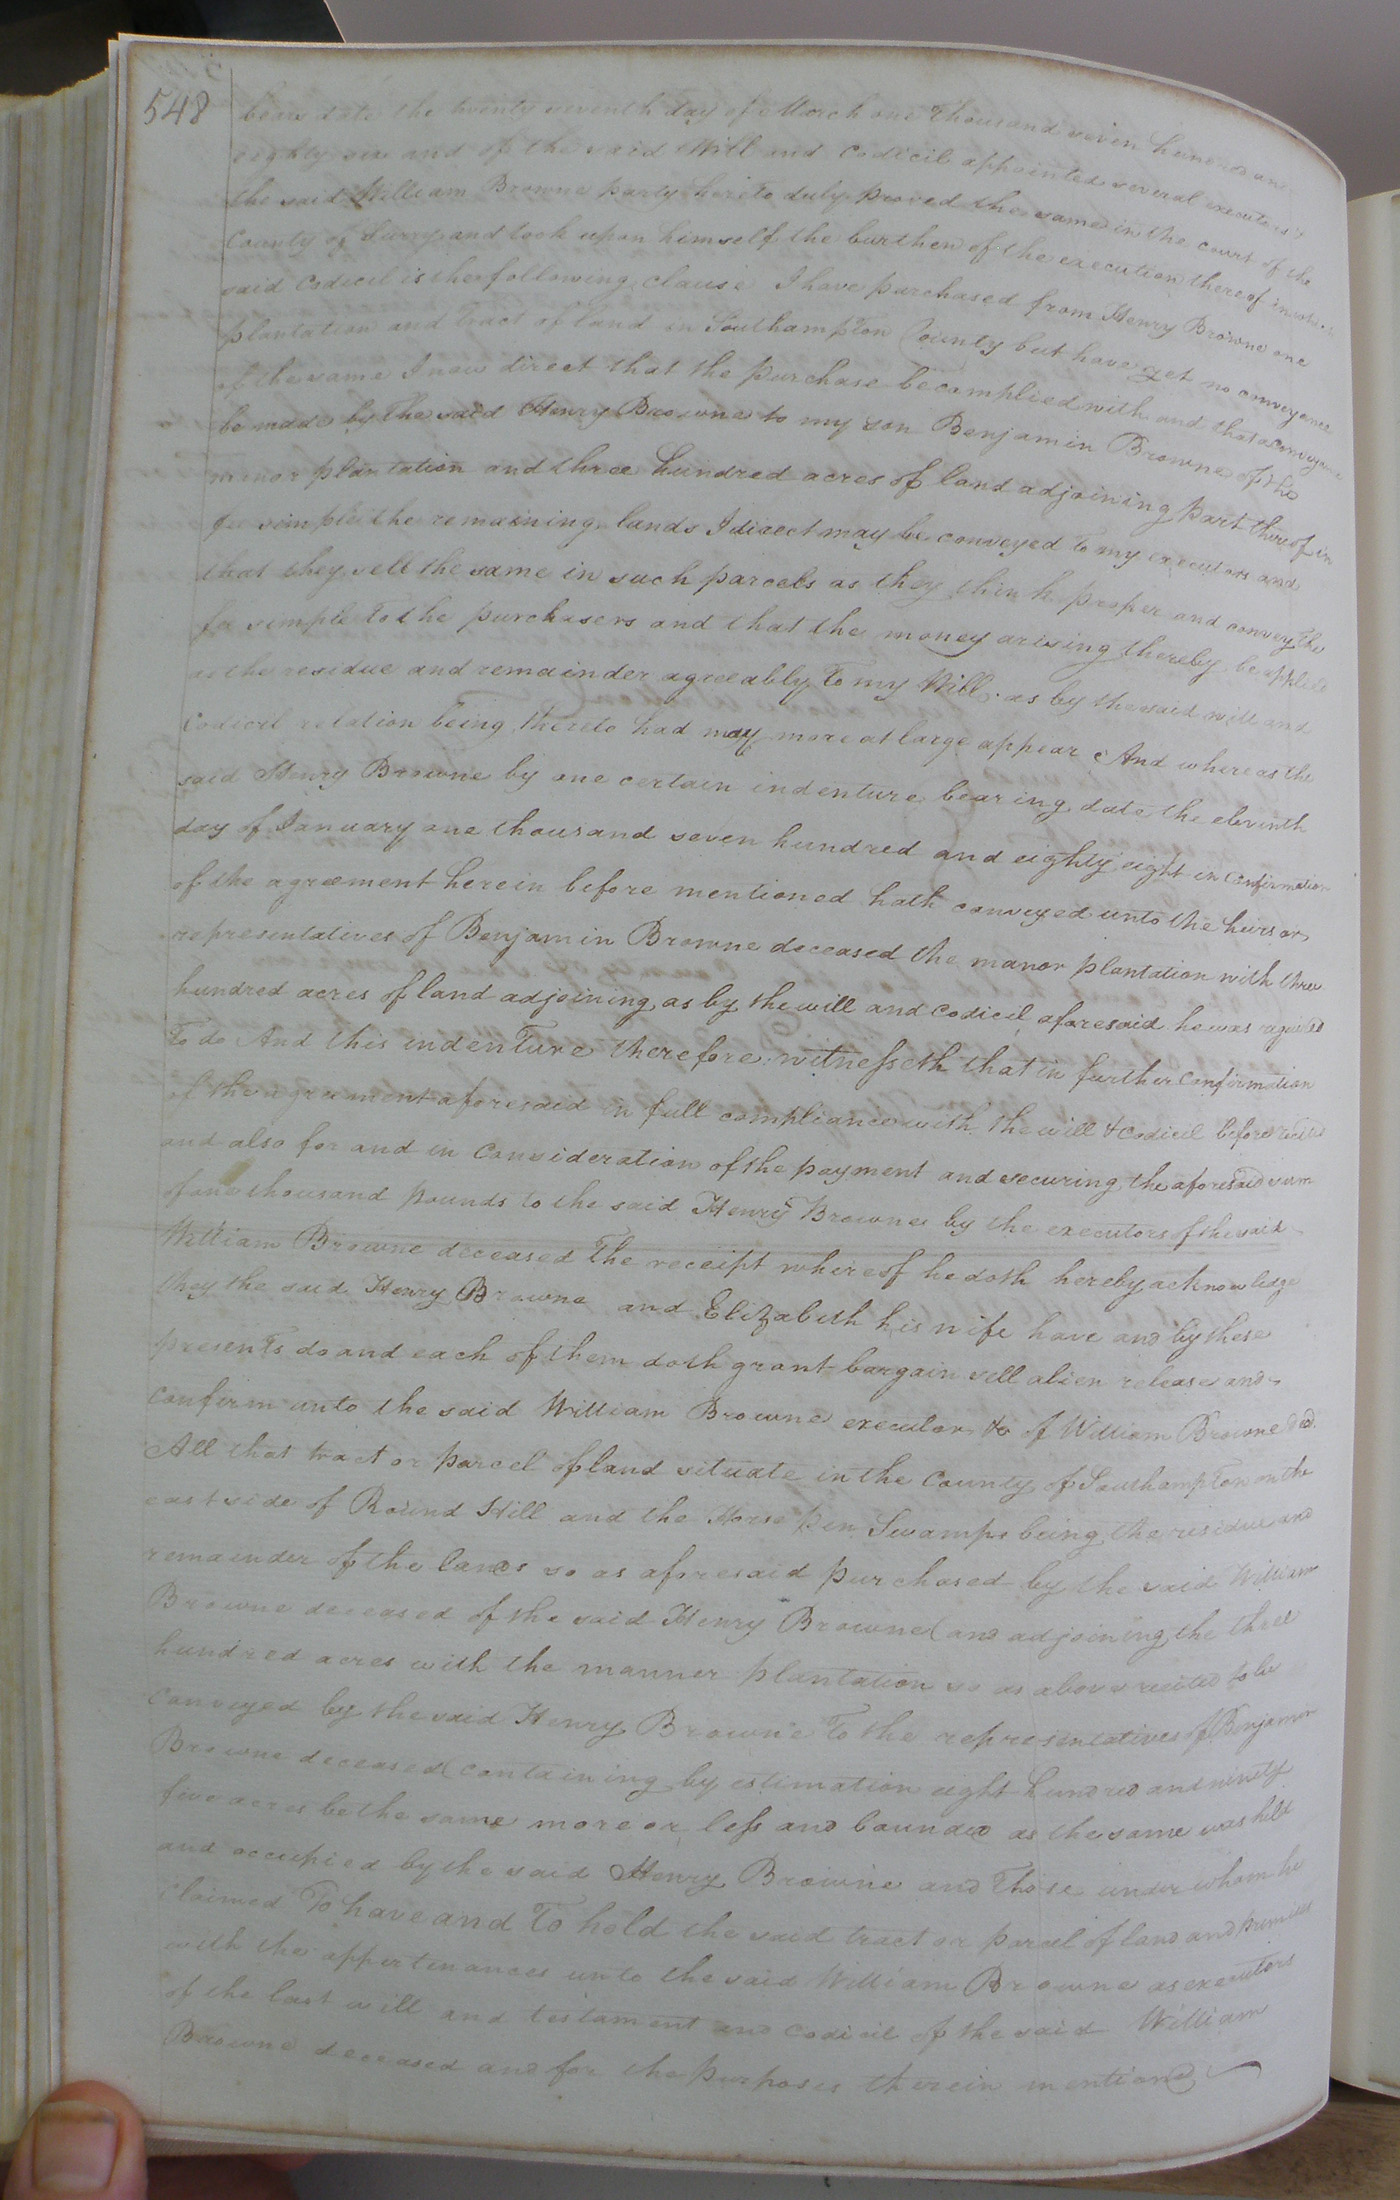 548
bears date the twenty seventh day of March one Thousand seven hundred and
eighty six and of the said Will and Codicil appointed several executors &
the said William Browne party hereto duly proved the same in the court of the
County of Surry and took upon himself the burthen of the execution thereof in which
said Codicil is the following clause I have purchased from Henry Browne one
plantation and tract of land in Southampton County but have yet no conveyance
of the same I now direct that the purchase be complied with and that a conveyance
be made by the said Henry Browne to my son Benjamin Browne of the
manor plantation and three hundred acres of land adjoining part thereof in
fee simple the remaining lands I direct may be conveyed to my executors and
that they sell the same in such parcels as they think proper and convey the
fee simple to the purchasers and that the money arising thereby be applied
as the residue and remainder agreeably to my Will as by the said will and
Codicil relation being thereto had may more at large appear And whereas the
said Henry Browne by one certain indenture bearing date the eleventh
day of January one thousand seven hundred and eighty eight in confirmation
of the agreement herein before mentioned hath conveyed unto the heirs or
representatives of Benjamin Browne deceased the manor plantation with three
hundred acres of land adjoining as by the will and codicil aforesaid he was required
To do And this indenture therefore witnesseth that in further confirmation
of the agreement aforesaid in full compliance with the will & codicil before recited
and also for and in Consideration of the payment and securing the aforesaid sum
of one thousand pounds to the said Henry Browne by the executors of the said
William Browne deceased The receipt whereof he doth hereby acknowledge
they the said Henry Browne and Elizabeth his wife have and by these
presents do and each of them doth grant bargain sell alien release and
confirm unto the said William Browne executor &c of William Browne decd.
All that tract or parcel of land situate in the County of Southampton on the
east side of Round Hill and the Horse pen Swamps being the residue and
remainder of the lands so as aforesaid purchased by the said William
Browne deceased of the said Henry Browne (and adjoining the three
hundred acres with the manner plantation so as above recited to be
Conveyed by the said Henry Browne To the representatives of Benjamin
Browne deceased (containing by estimation eight hundred and ninety
five acres be the same more or less and bounded as the same was held
and occupied by the said Henry Browne and Those under whom he
claimed To have and To hold the said tract or parcel of land and premises
with the appertenances unto the said William Browne as executors
of the last will and testament and codicil of the said William
Browne deceased and for the purposes therein mentioned